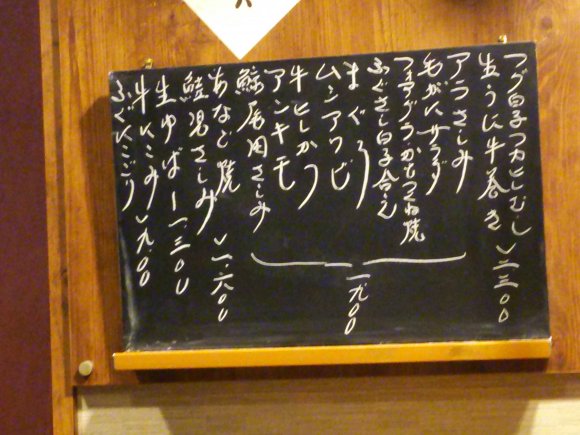 フグ白子フカヒレむし
生うに牛巻き
〉二三〇〇
アラさしみ
毛がにサラダ
フォアグラかもつくね焼
ふぐさし白子合え
まぐろ
ムシアワビ
牛ヒレカツ
アンキモ
鯨尾肉さしみ
一九〇〇
あなご焼
鮭児さしみ
〉一六〇〇
生ゆばー一三〇〇
牛にこみ
ふぐにこごり
〉九〇〇